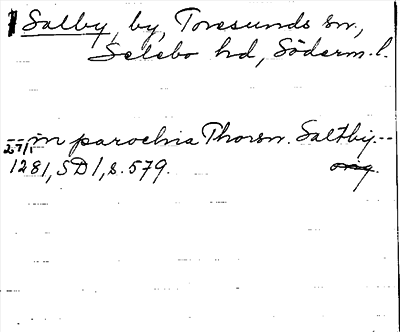 Salby, by, Toresunds sn.,
Selebo hd, Söderm. l.
--in parochia Thorsn. Saltby.--
27/1 1281, SD 1, s. 579. orig.